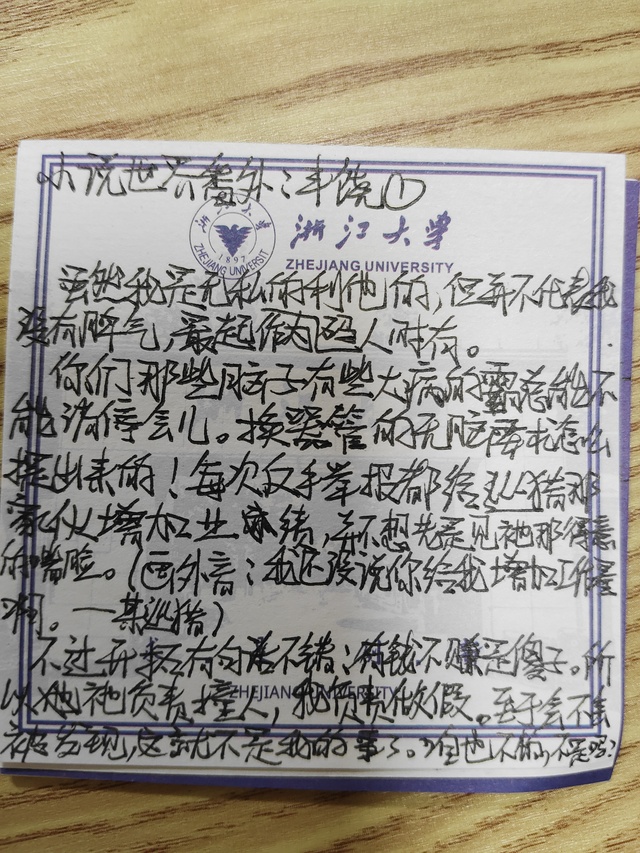 小说世界番外:丰饶①
浙江大学
1897
ZHEJIANG UNIVERSITY
ZHEJIANG UNIVERSITY
虽然我是无私的利他的,但并不代表我
没有脾气,最起作为码人时有。
你们那些脑子有些大病的霸总能不
能消停会儿。换器管的无脑降术怎么
提出来的!每次反手举报都给巡猎那
家伙增加业绩,并不想老是见祂那得意
的嘴脸。(画外音:我还没说你给我增加工作量
啊。——某巡猎)
不过开拓有句话不错:有钱不赚是傻子。所
以他祂负责撞人,我负责做假。至于会不会
被发现,这就不是我的事了。
ZHEJIANG UNIVERSITY